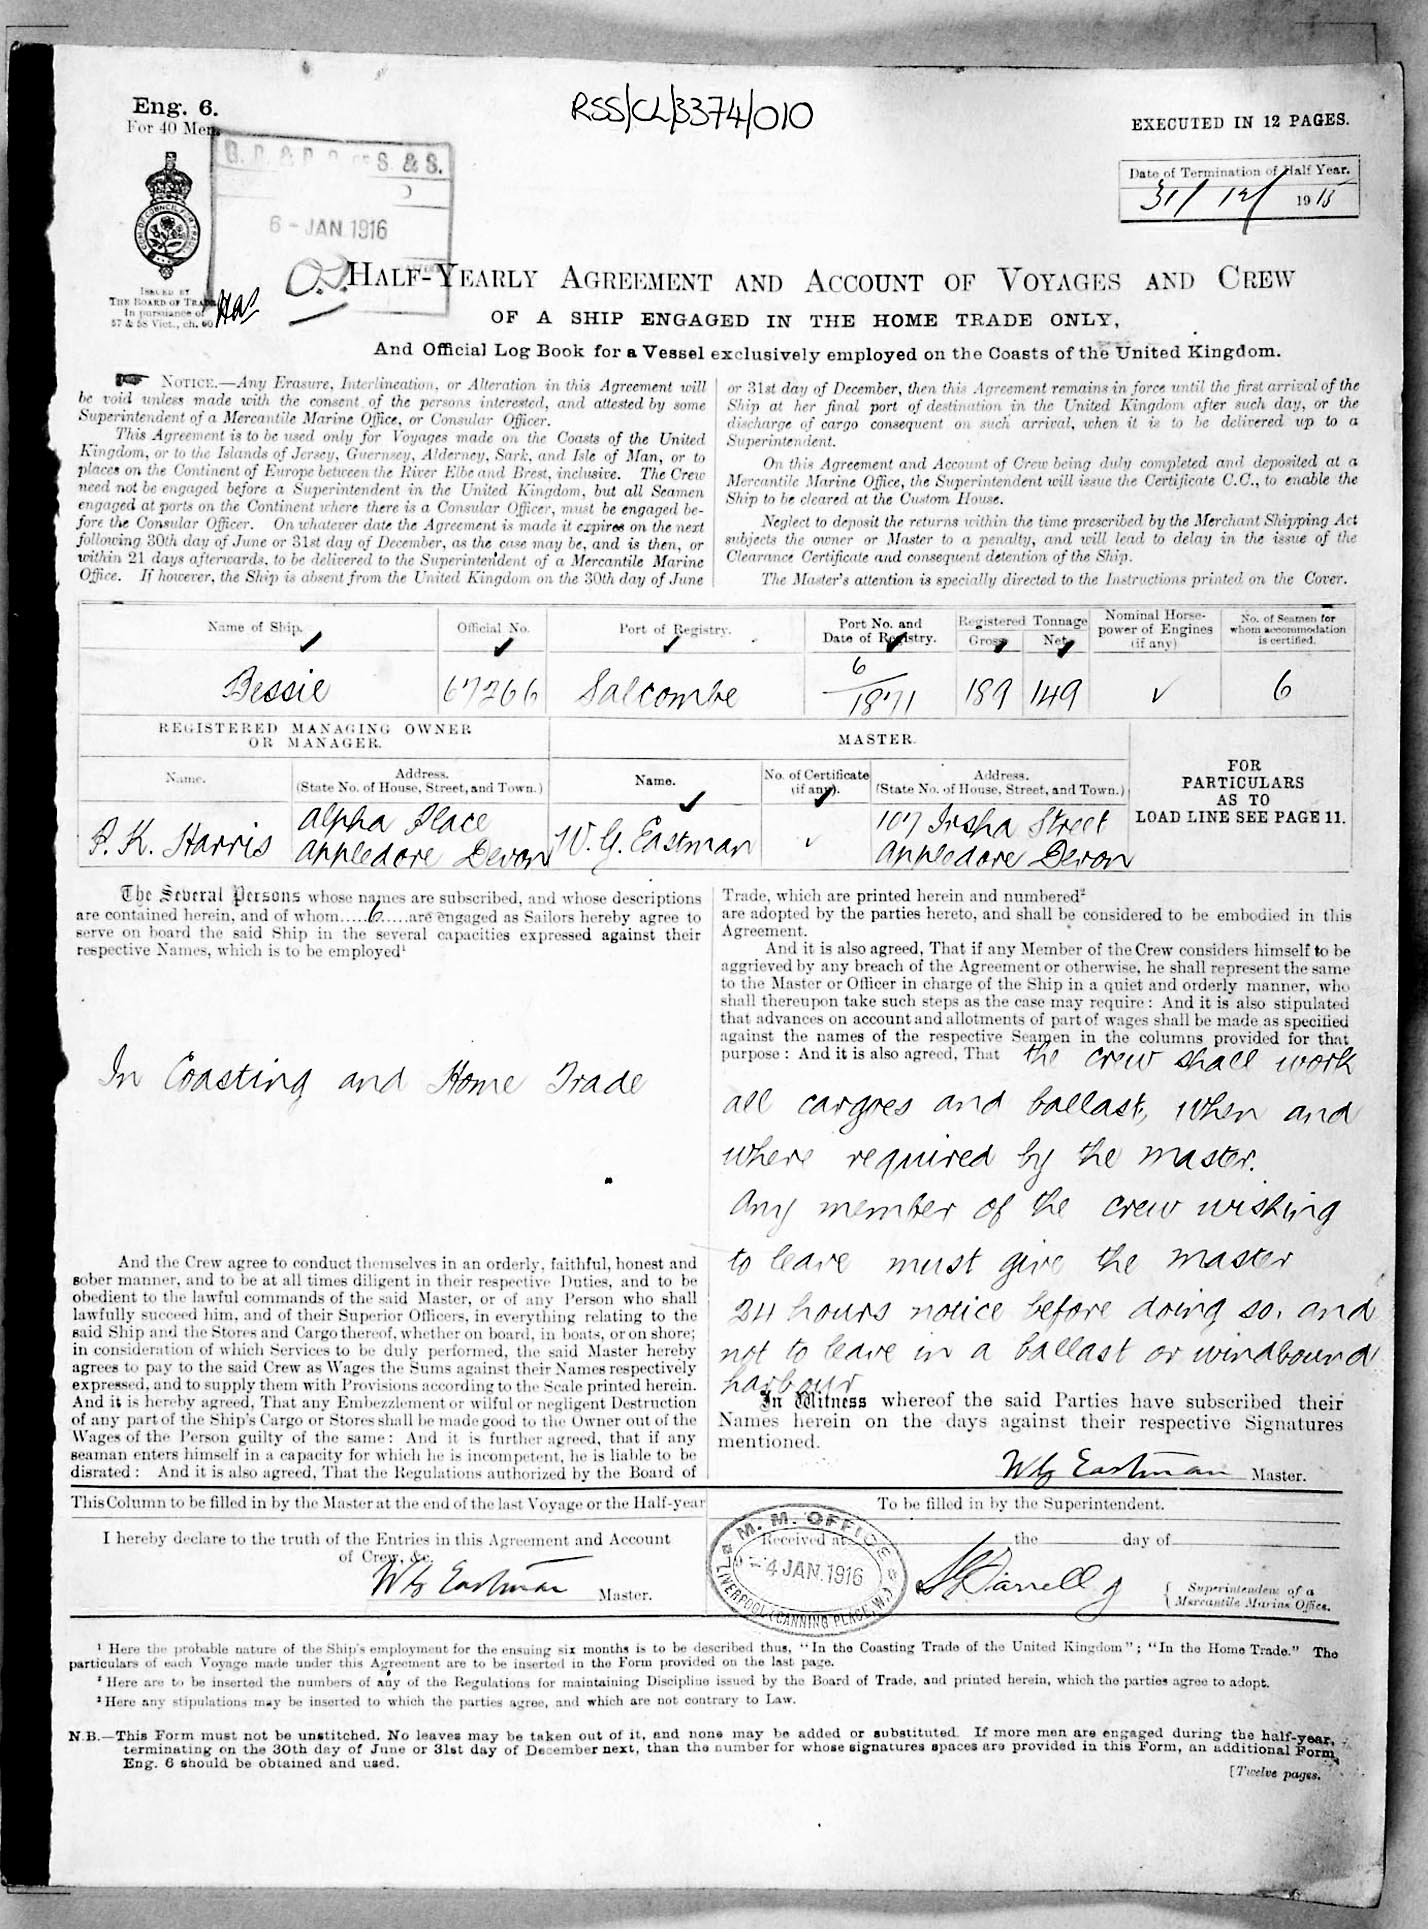 Eng. 6.
For 40 Men.
RSS/CL/3374/010
EXECUTED IN 12 PAGES.
Date of Termination of Half Year.
31/12/1915
& S.
6 - JAN. 1916
ISSUED BY
THE BOARD OF TRADE
In pursuance of
57 & 58 Vict., ch. 60
HALF-YEARLY AGREEMENT AND ACCOUNT OF VOYAGES AND CREW
OF A SHIP ENGAGED IN THE HOME TRADE ONLY,
And Official Log Book for a Vessel exclusively employed on the Coasts of the United Kingdom.
NOTICE.—Any Erasure, Interlineation, or Alteration in this Agreement will
be void unless made with the consent of the persons interested, and attested by some
Superintendent of a Mercantile Marine Office, or Consular Officer.
This Agreement is to be used only for Voyages made on the Coasts of the United
Kingdom, or to the Islands of Jersey, Guernsey, Alderney, Sark, and Isle of Man, or to
places on the Continent of Europe between the River Elbe and Brest, inclusive. The Crew
need not be engaged before a Superintendent in the United Kingdom, but all Seamen
engaged at ports on the Continent where there is a Consular Officer, must be engaged be-
fore the Consular Officer. On whatever date the Agreement is made it expires on the next
following 30th day of June or 31st day of December, as the case may be, and is then, or
within 21 days afterwards, to be delivered to the Superintendent of a Mercantile Marine
Office. If however, the Ship is absent from the United Kingdom on the 30th day of June
or 31st day of December, then this Agreement remains in force until the first arrival of the
Ship at her final port of destination in the United Kingdom after such day, or the
discharge of cargo consequent on such arrival, when it is to be delivered up to a
Superintendent.
On this Agreement and Account of Crew being duly completed and deposited at a
Mercantile Marine Office, the Superintendent will issue the Certificate C.C., to enable the
Ship to be cleared at the Custom House.
Neglect to deposit the returns within the time prescribed by the Merchant Shipping Act
subjects the owner or Master to a penalty, and will lead to delay in the issue of the
Clearance Certificate and consequent detention of the Ship.
The Master's attention is specially directed to the Instructions printed on the Cover.
Name of Ship. Official No. Port of Registry. Port No. and Date of Registry. Registered Tonnage Gross Net Nominal Horse-power of Engines (if any) No. of Seamen for whom accommodation is certified.
Bessie 67266 Salcombe 6/1871 189 149 ✓ 6
REGISTERED MANAGING OWNER OR MANAGER. MASTER.
Name. Address. (State No. of House, Street, and Town.) Name. No. of Certificate (if any). Address. (State No. of House, Street, and Town.)
FOR
PARTICULARS
AS TO
LOAD LINE SEE PAGE 11.
P. K. Harris Alpha Place Appledore Devon W. G. Eastman ✓ 107 Irsha Street Appledore Devon
The Several Persons whose names are subscribed, and whose descriptions
are contained herein, and of whom 6 are engaged as Sailors hereby agree to
serve on board the said Ship in the several capacities expressed against their
respective Names, which is to be employed¹
In Coasting and Home Trade
And the Crew agree to conduct themselves in an orderly, faithful, honest and
sober manner, and to be at all times diligent in their respective Duties, and to be
obedient to the lawful commands of the said Master, or of any Person who shall
lawfully succeed him, and of their Superior Officers, in everything relating to the
said Ship and the Stores and Cargo thereof, whether on board, in boats, or on shore;
in consideration of which Services to be duly performed, the said Master hereby
agrees to pay to the said Crew as Wages the Sums against their Names respectively
expressed, and to supply them with Provisions according to the Scale printed herein.
And it is hereby agreed, That any Embezzlement or wilful or negligent Destruction
of any part of the Ship's Cargo or Stores shall be made good to the Owner out of the
Wages of the Person guilty of the same: And it is further agreed, that if any
seaman enters himself in a capacity for which he is incompetent, he is liable to be
disrated: And it is also agreed, That the Regulations authorized by the Board of
Trade, which are printed herein and numbered²
are adopted by the parties hereto, and shall be considered to be embodied in this
Agreement.
And it is also agreed, That if any Member of the Crew considers himself to be
aggrieved by any breach of the Agreement or otherwise, he shall represent the same
to the Master or Officer in charge of the Ship in a quiet and orderly manner, who
shall thereupon take such steps as the case may require: And it is also stipulated
that advances on account and allotments of part of wages shall be made as specified
against the names of the respective Seamen in the columns provided for that
purpose: And it is also agreed, That the crew shall work
all cargoes and ballast, when and
where required by the master.
Any member of the crew wishing
to leave must give the master
24 hours notice before doing so, and
not to leave in a ballast or windbound
harbour
In Witness whereof the said Parties have subscribed their
Names herein on the days against their respective Signatures
mentioned.
W G Eastman Master.
This Column to be filled in by the Master at the end of the last Voyage or the Half-year
I hereby declare to the truth of the Entries in this Agreement and Account
of Crew, &c.
W G Eastman Master.
To be filled in by the Superintendent.
Received at the day of
M. M. OFFICE
- 4 JAN. 1916
LIVERPOOL (CANNING PLACE, W.)
Superintendent of a
Mercantile Marine Office.
¹ Here the probable nature of the Ship's employment for the ensuing six months is to be described thus, "In the Coasting Trade of the United Kingdom"; "In the Home Trade." The
particulars of each Voyage made under this Agreement are to be inserted in the Form provided on the last page.
² Here are to be inserted the numbers of any of the Regulations for maintaining Discipline issued by the Board of Trade, and printed herein, which the parties agree to adopt.
³ Here any stipulations may be inserted to which the parties agree, and which are not contrary to Law.
N.B.—This Form must not be unstitched. No leaves may be taken out of it, and none may be added or substituted. If more men are engaged during the half-year,
terminating on the 30th day of June or 31st day of December next, than the number for whose signatures spaces are provided in this Form, an additional Form
Eng. 6 should be obtained and used.
[Twelve pages.